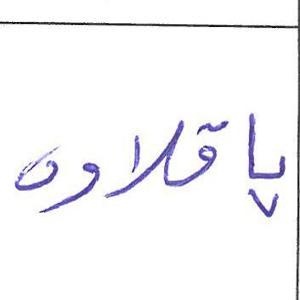 پاقلاوە